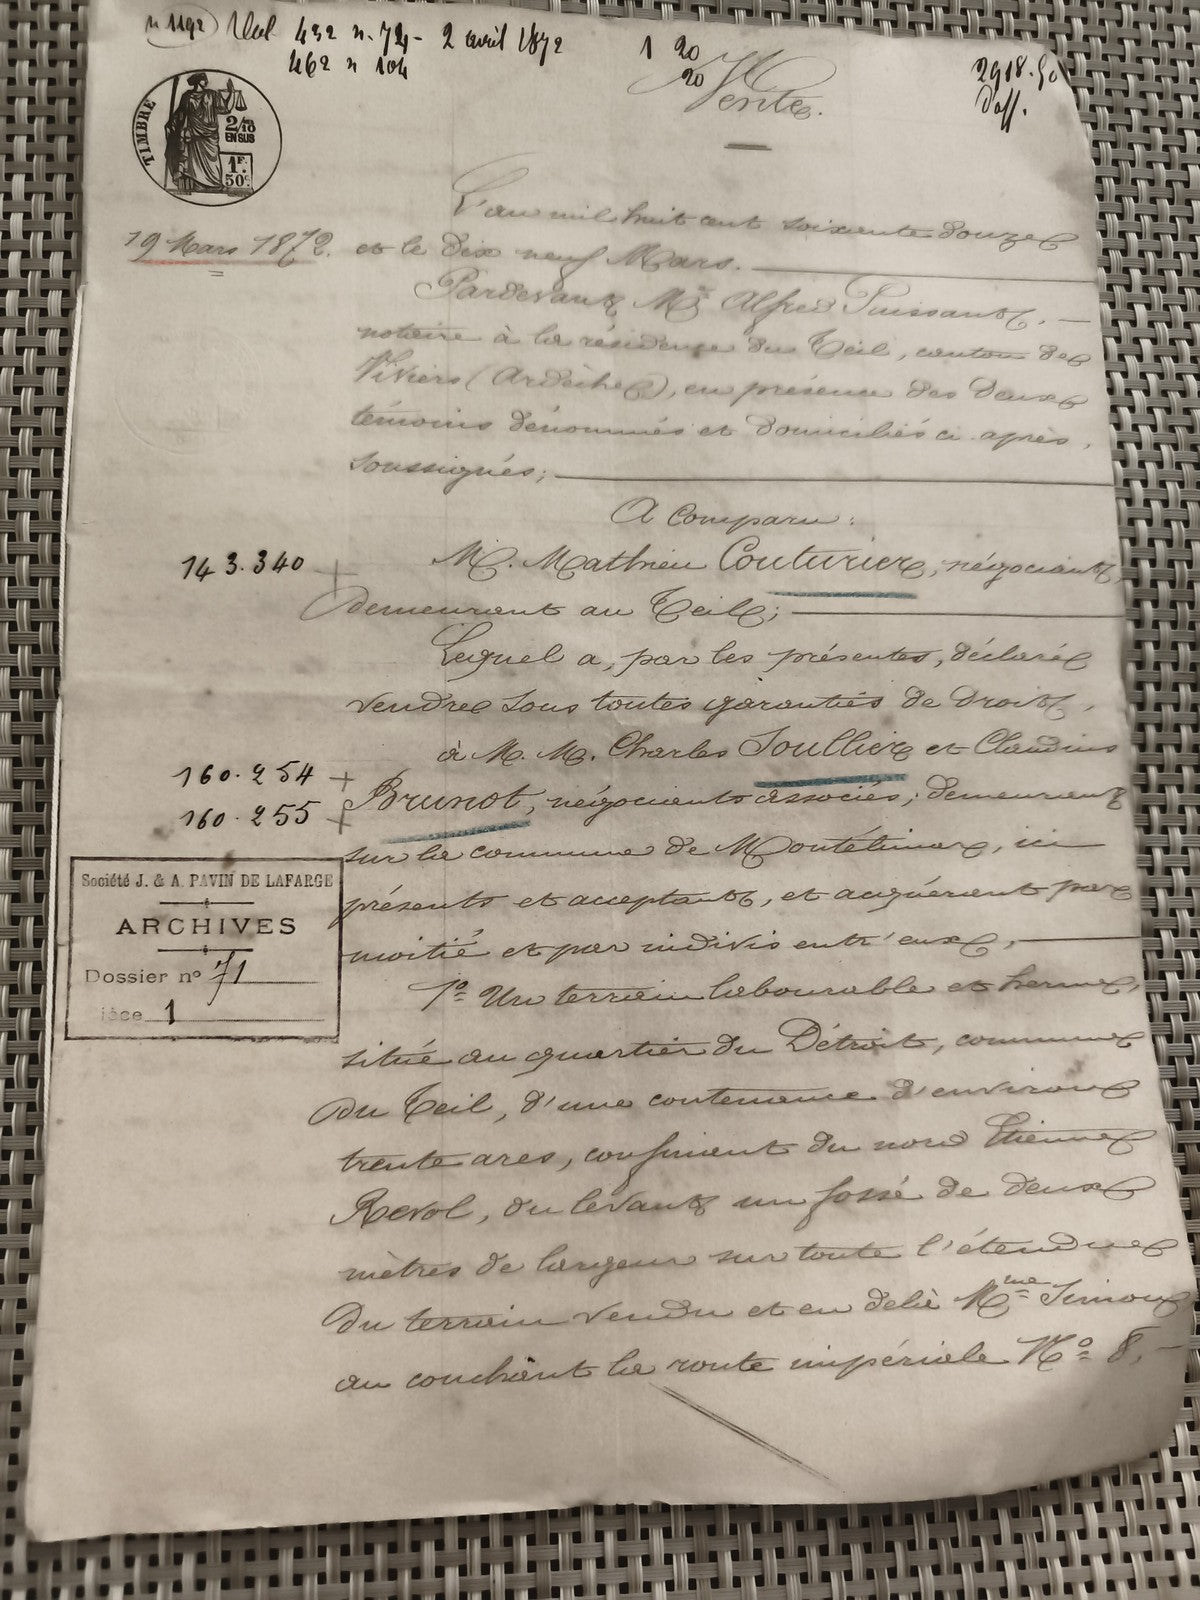 n 1192 Vol 432 n. 74 - 2 avril 1872
462 n 104
1 20
20
2918.50
Doff.
Vente.
TIMBRE
2/10
EN SUS
1F.
50c
19 Mars 1872.
L'an mil huit cent soixante douze
et le dix neuf Mars.
Pardevant Me Alfred Puissant,
notaire à la résidence du Teil, canton de
Viviers (Ardèche), en présence des deux
témoins dénommés et domiciliés ci après,
soussignés;
A comparu:
143.340
M. Mathieu Couturier, négociant,
demeurant au Teil;
Lequel a, par les présentes, déclaré
vendre sous toutes garanties de droit,
à M. M. Charles Soullier et Claudius
160.254
160.255
Brunot, négociants associés, demeurant
sur la commune de Montélimar, ici
présents et acceptant, et acquérant par
moitié et par indivis entr'eux,
Société J. & A. PAVIN DE LAFARGE
ARCHIVES
Dossier no 71
ièce 1
1o Un terrain labourable et herme,
situé au quartier du Détroit, commune
du Teil, d'une contenance d'environ
trente ares, confinant du nord Etienne
Revol, du levant un fossé de deux
mètres de largeur sur toute l'étendue
du terrain vendu et en delà Mme Simon
au couchant la route impériale No 8,